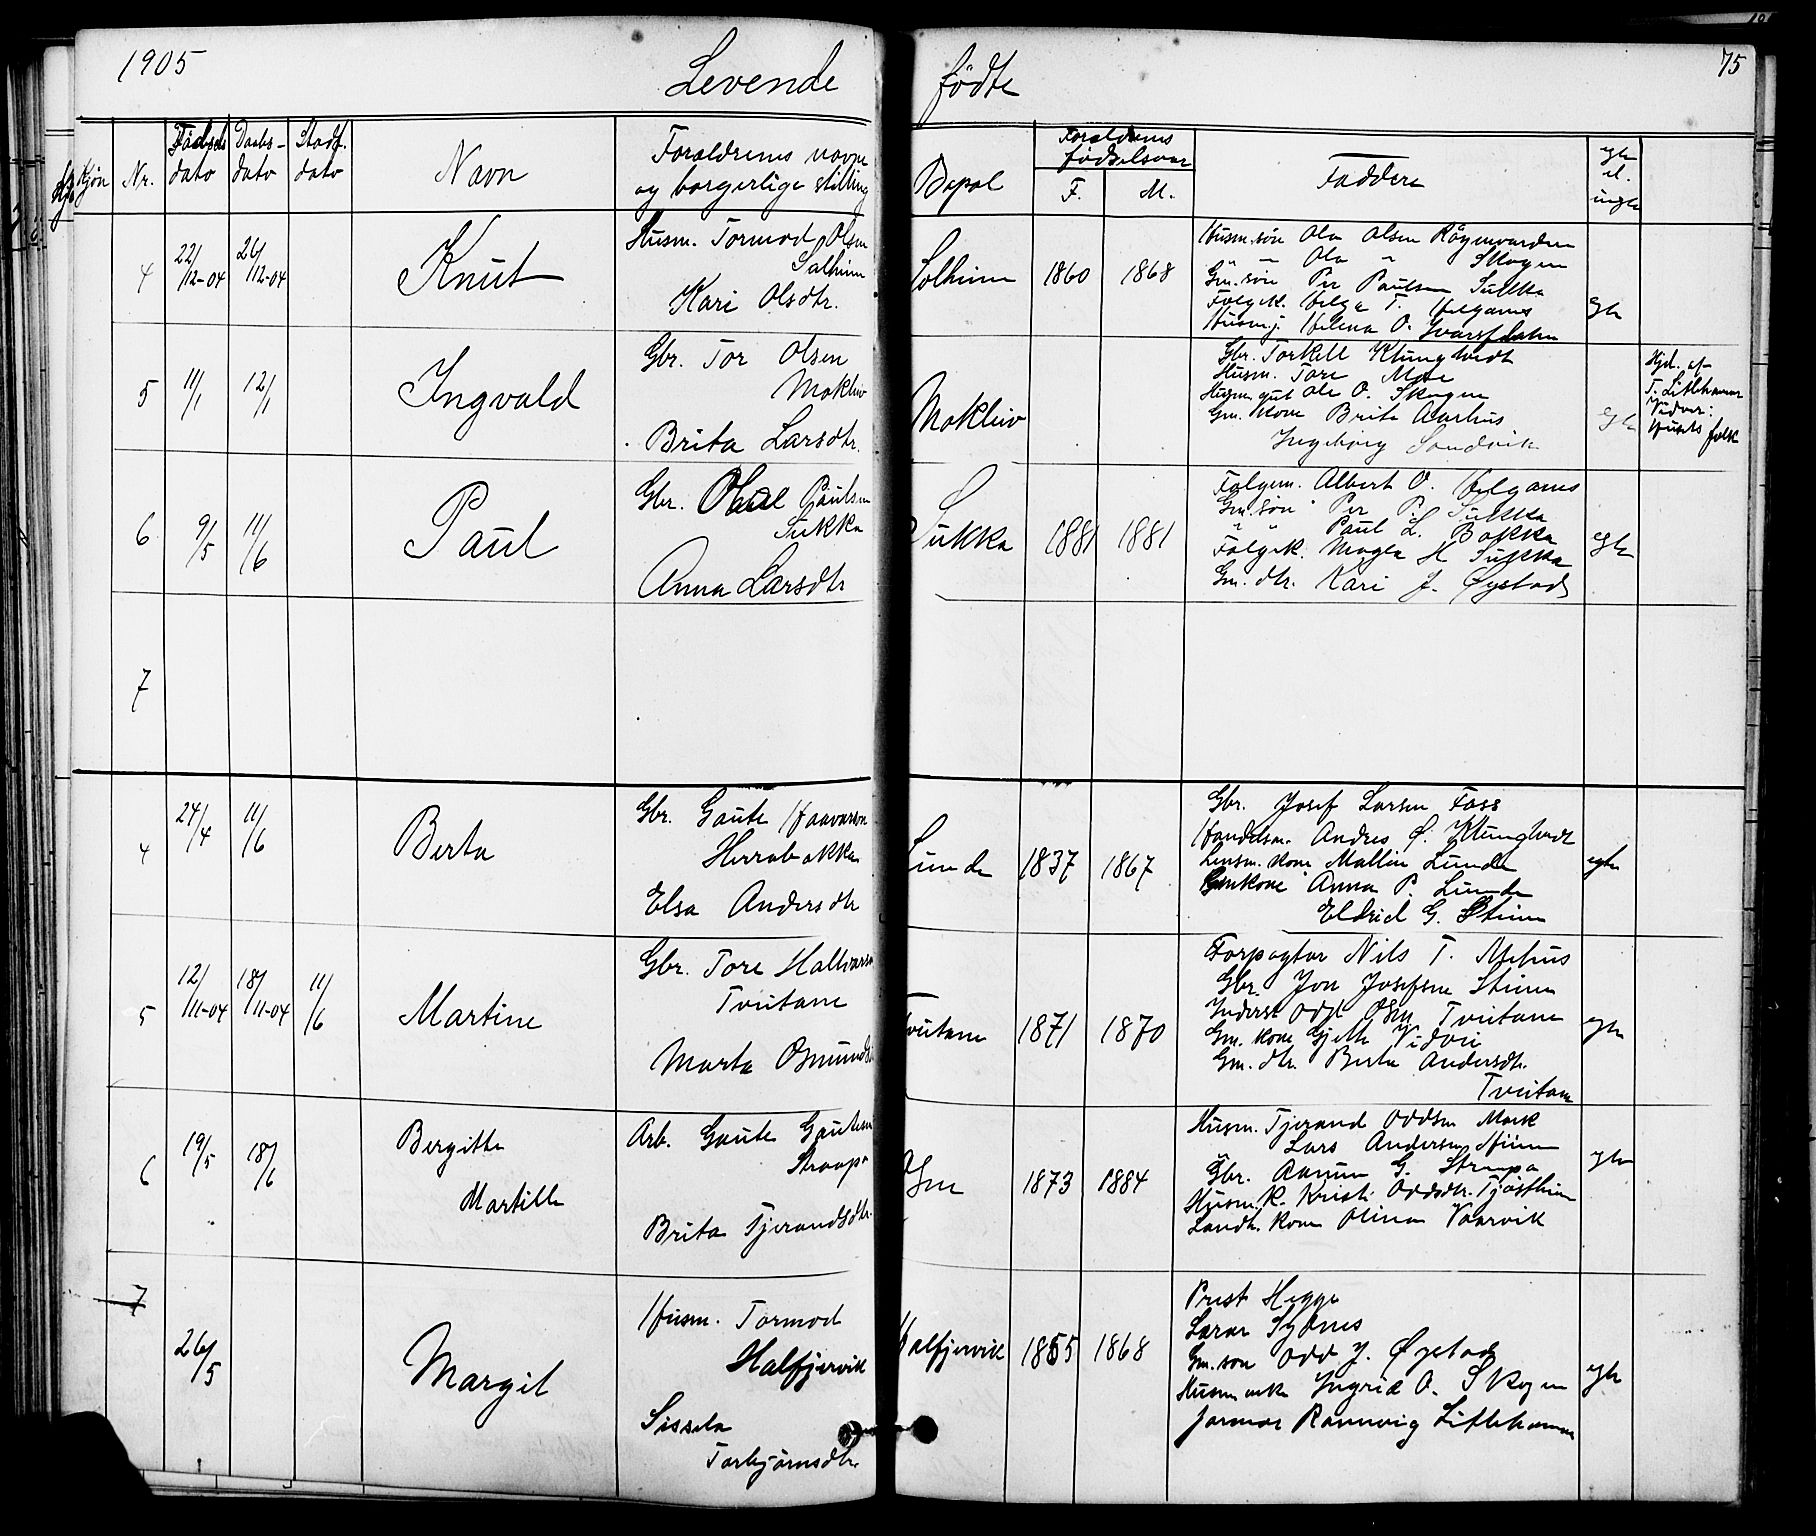 1905
Levende
fødte
75
Kjøn
Nr.
Fødsels dato
Daabs- dato
Stadf. dato
Navn
Forældrenes navne
og borgerlige stilling
Bopæl
Forældrenes
fødselsaar
F.
M.
Faddere
egte
el.
uegte
4
22/12-04
26/12-04
Knut
Husm. Tormod Olsen
Solheim
Kari Olsdtr.
Solheim
1860
1868
Husm. søn Ola Olsen Røynvarden
" – Ola " Skogen
Gm. søn Per Paulsen Sukka
Folgek. Helga T. Helganes
Husm. j. Helena O.
Egte
5
11/1
12/1
Ingvald
Gbr. Tor Olsen
Mokleiv
Brita Larsdtr.
Mokleiv
Gbr. Torkell Klungtveit
Husm. Tore Moe
Husm gut Ole O. Skogen
Gm. kone Brita Aarhus
Ingeborg Sandvik
Egte
Hjd. af
T. Litlehamar
Vidner:
Husets folk
6
9/5
11/6
Paul
Gbr. Olal Paulsen
Sukka
Anna Larsdtr
Sukka
1881
1881
Folgem. Albert O. Helganes
Gm. søn Per P. Sukka
" " Paul L. Bakka
Folgek. Magla H Sukka
Gm. dtr. Kari J. Øystad
egte
7
4
24/4
11/6
Berta
Gbr. Gaute Haavarson
Herrabakka
Elsa Andersdtr
Lunde
1837
1867
Gbr. Josef Larsen Foss
Handelsm. Andres Ø. Klungtveit
Lensm. kone Mallin Lunde
Gm kone Anna P. Lunde
Eldrid G. Steine
egte
5
12/11-04
18/11-04
11/6
Martine
Gbr. Tore Hallvarson
Tveitane
Marta Osmunds
Tveitane
1871
1870
Forpagter Nils T. Mehus
Gbr. Jon Josefsen Steine
Inderst Odd Osm. Tveitane
Gm. kone Gjette Vidvei
Gm. dtr. Berta Andersdtr.
Tveitane
egte
6
19/5
18/6
Bergitte
Martille
Arb. Gaute Gautesen
Straapa
Brita Tjerandsdtr.
1873
1884
Husm. Tjerand Oddsen Mork
" Lars Andersen Steine
Gbr. Aamun G. Straapa
Husm. k. Kristi Oddsdtr. Tjøstheim
Landh. kone Olina Vaarvik
egte
7
26/5
Margit
Husm. Tormod
Halfjervik
Sissela
Torbjørnsdtr.
Halfjervik
1855
1868
Prest Hegge
Lærer Sydnes
Gm. søn Odd J. Øystad
Husm enke Ingrid O. Skogen
Jormor Rannveig Litlehamar
egte